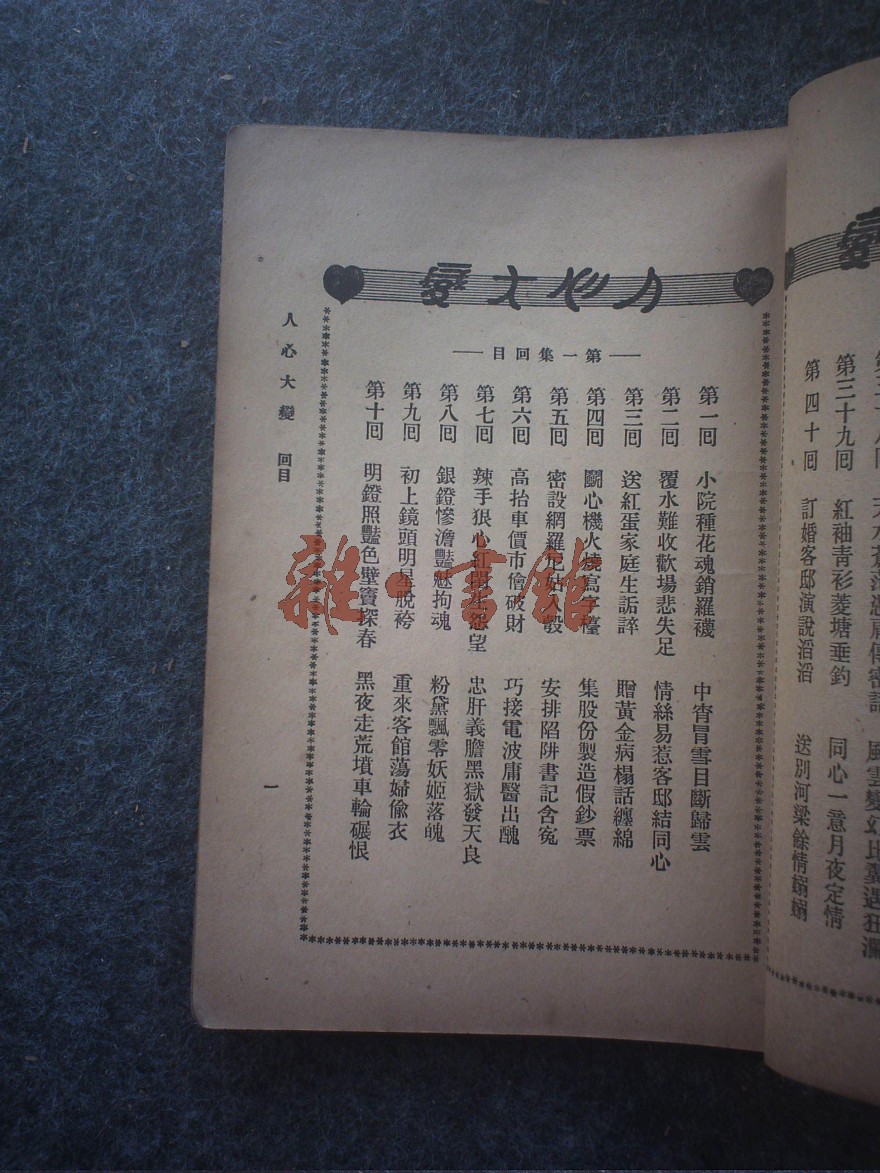 人心大變
—第一集回目—
第一回 小院種花魂銷羅襪 中宵冒雪目斷歸雲
第二回 覆水難收歡場悲失足 情絲易惹客邸結同心
第三回 送紅蛋家庭生詬誶 贈黃金病榻話纏綿
第四回 鬭心機火燒寫字檯 集股份製造假鈔票
第五回 密設網羅尼姑入彀 安排陷阱書記含寃
第六回 高抬車價市儈破財 巧接電波庸醫出醜
第七回 辣手狠心紅閨生怨望 忠肝義膽黑獄發天良
第八回 銀鐙慘澹豔魅拘魂 粉黛飄零妖姬落魄
第九回 初上鏡頭明星脫袴 重來客館蕩婦偸衣
第十回 明鐙照豔色壁竇探春 黑夜走荒墳車輪碾恨
人心大變 回目
一
變
第三十九回 紅袖靑衫菱塘垂釣 同心一意月夜定情
第四十回 訂婚客邸演說滔滔 送別河梁餘情嫋嫋
雜書館